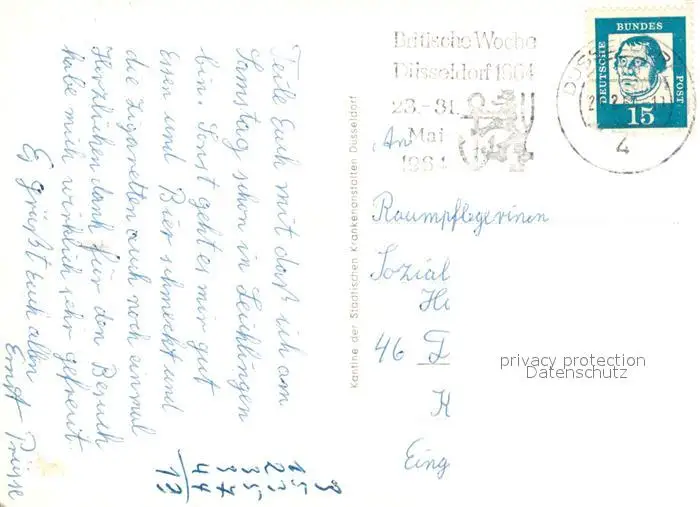 Teile Euch mit daß ich am
Samstag schon in Leichlingen
bin. Sonst geht es mir gut
Essen und Bier schmeckt und
die Zigaretten auch noch einmal
Herzlichen dank für den Besuch
habe mich wirklich sehr gefreut.
Es grüßt Euch allen
Ernst
Kantine der Städtischen Krankenanstalten Düsseldorf
Britische Woche
Düsseldorf 1964
23.-31.
Mai
1964
DEUTSCHE
BUNDES
POST
15
4
An
Raumpflegerinen
Sozial
46
Eing
privacy protection
Datenschutz